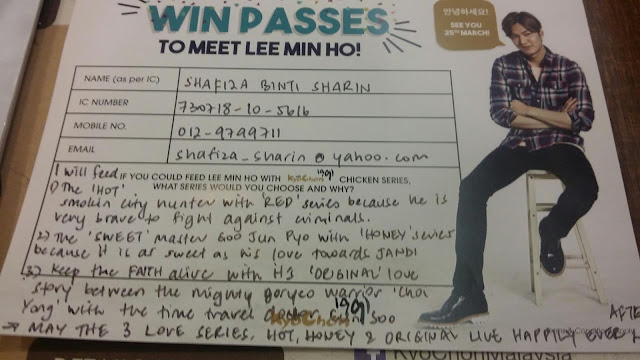 WIN PASSES
TO MEET LEE MIN HO!
안녕하세요!
SEE YOU
25TH MARCH!
NAME (as per IC) SHAFIZA BINTI SHARIN
IC NUMBER 730718-10-5616
MOBILE NO. 012-9799711
EMAIL shafiza_sharin@yahoo.com
I will feed IF YOU COULD FEED LEE MIN HO WITH KyoChon 1991 CHICKEN SERIES,
WHAT SERIES WOULD YOU CHOOSE AND WHY?
1) The 'HOT'
smokin city hunter with 'RED' series because he is
very brave to fight against criminals.
2) The 'SWEET' master Goo Jun Pyo with 'HONEY' series
because it is as sweet as his love towards JANDI
3) Keep the FAITH alive with HIS 'ORIGINAL' love
story between the mighty Goryeo warrior 'Choi
Yong' with the time travel Soo
KyoChon 1991
→ MAY THE 3 LOVE SERIES, HOT, HONEY & ORIGINAL LIVE HAPPILY EVER AFTE